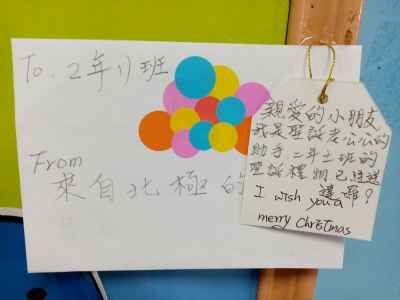 To. 2年11班
From
來自北極的
親愛的小朋友
我是聖誕老公公的
助手二年十一班的
聖誕禮物已經送
達囉?
I wish you a
merry Christmas